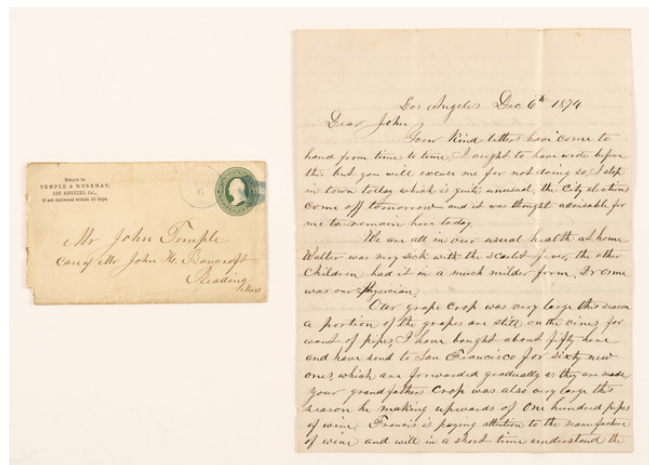 Return to
TEMPLE & WORKMAN,
LOS ANGELES, CAL.,
If not delivered within 10 days.
6
Mr John Temple
Care of Mr John H. Bancroft
Reading
Mass
Los Angeles Dec 6th 1874
Dear John
Your kind letters have come to
hand from time to time, I ought to have wrote before
this but you will excuse me for not doing so, I stop
in town today which is quite unusual, the City election
come off tomorrow and it was thought advisable for
me to remain here today.
We are all in our usual health at home
Walter was very sick with the scarlet fever, the other
Children had it in a much milder form. Dr Orme
was our Physician,
Our grape Crop was very large this season
a portion of the grapes are still on the vines for
want of pipes, I have bought about fifty here
and have send to San Francisco for sixty new
ones, which are forwarded gradually as they are made
your grandfathers Crop was also very large this
season he making upwards of One hundred pipes
of wine, Francis is paying attention to the manufacture
of wine and will in a short time understand the